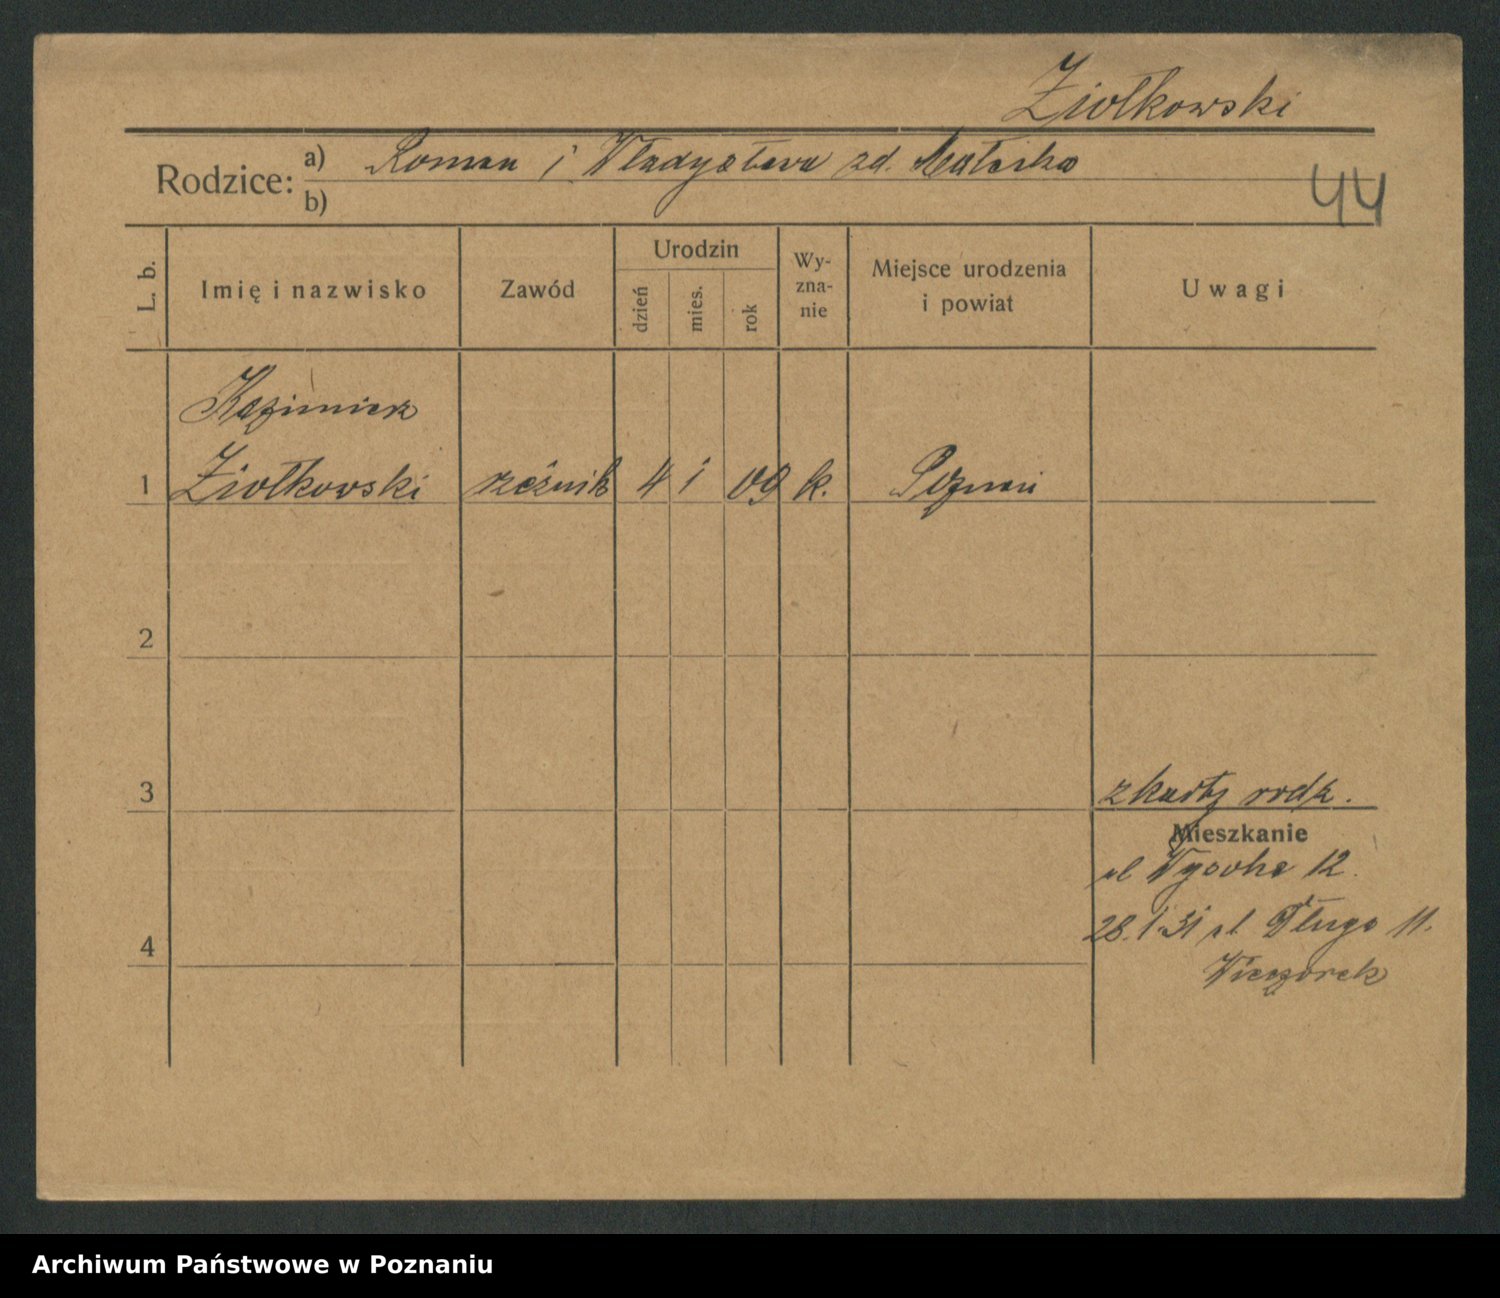 Ziółkowski
Rodzice: a) Roman i Władysława zd. Małecka
b)
44
L. b. Imię i nazwisko Zawód Urodzin dzień mies. rok Wy-zna-nie Miejsce urodzenia i powiat Uwagi
Kazimierz
1 Ziółkowski rzeźnik 4 1 09 k. Poznań
2
3 z karty rodz.
Mieszkanie
ul Wysoka 12.
4 28.1.31 ul Długa 11.
Wieczorek
Archiwum Państwowe w Poznaniu